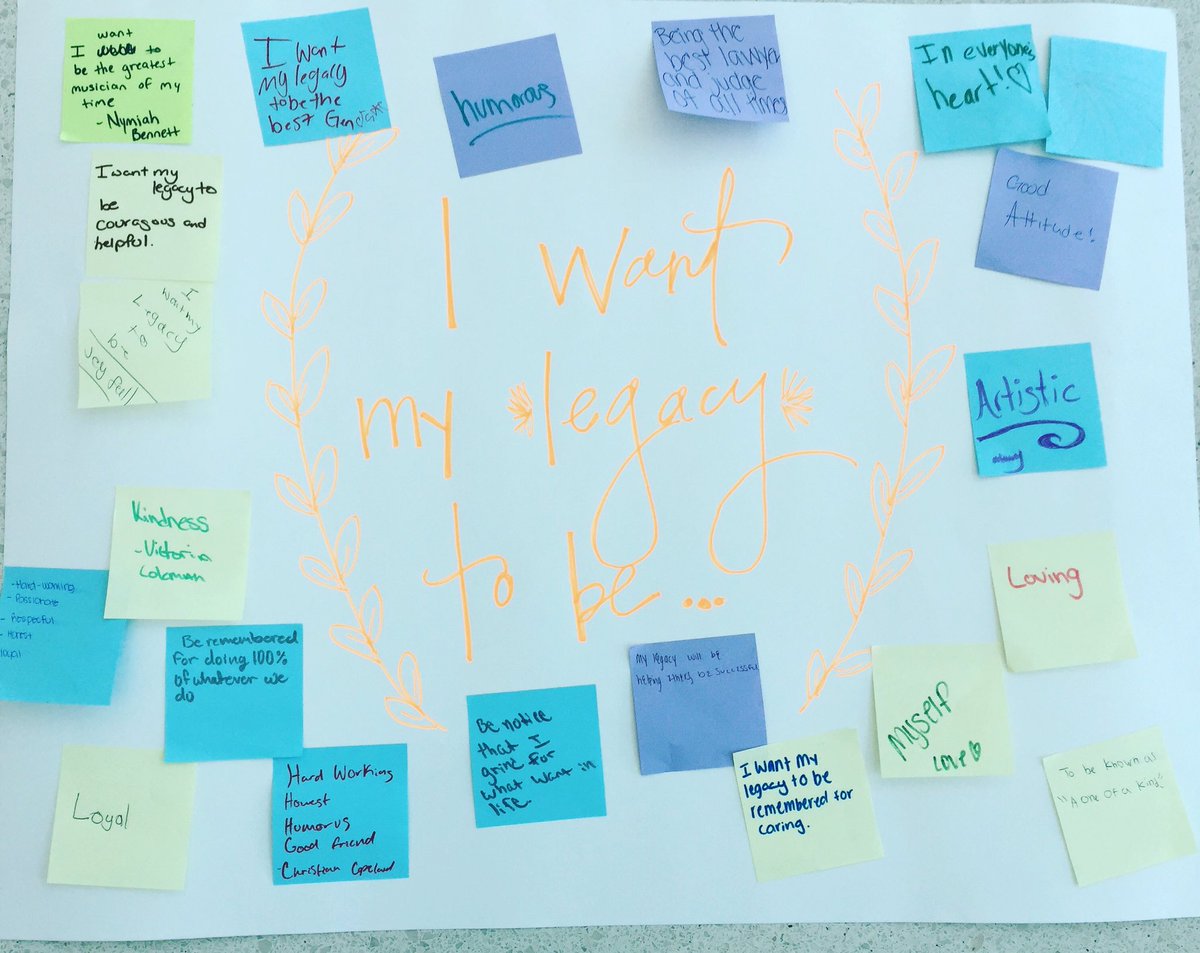 I want
my legacy
to be...
want
I to
be the greatest
musician of my
time
- Nymiah
Bennett
I want
my legacy
to be the
best
humorous
Being the
best lawyer
and judge
of all times
In everyones
heart! ♡
Good
Attitude!
I want my
legacy to
be
couragous and
helpful.
I
want my
Legacy
to
be
Artistic
Kindness
- Victoria
Coloman
Loving
- Hard-working
- Passionate
- Respectful
- Honest
loyal
Be remembered
for doing 100%
of whatever we
do
My legacy will be
helping others be successful
Myself
Love ♡
Be notice
that I
grine for
what want in
life
I want my
legacy to be
remembered for
caring.
To be known as
"A one of a kind"
Loyal
Hard Working
Honest
Humorus
Good friend
- Christian Copeland